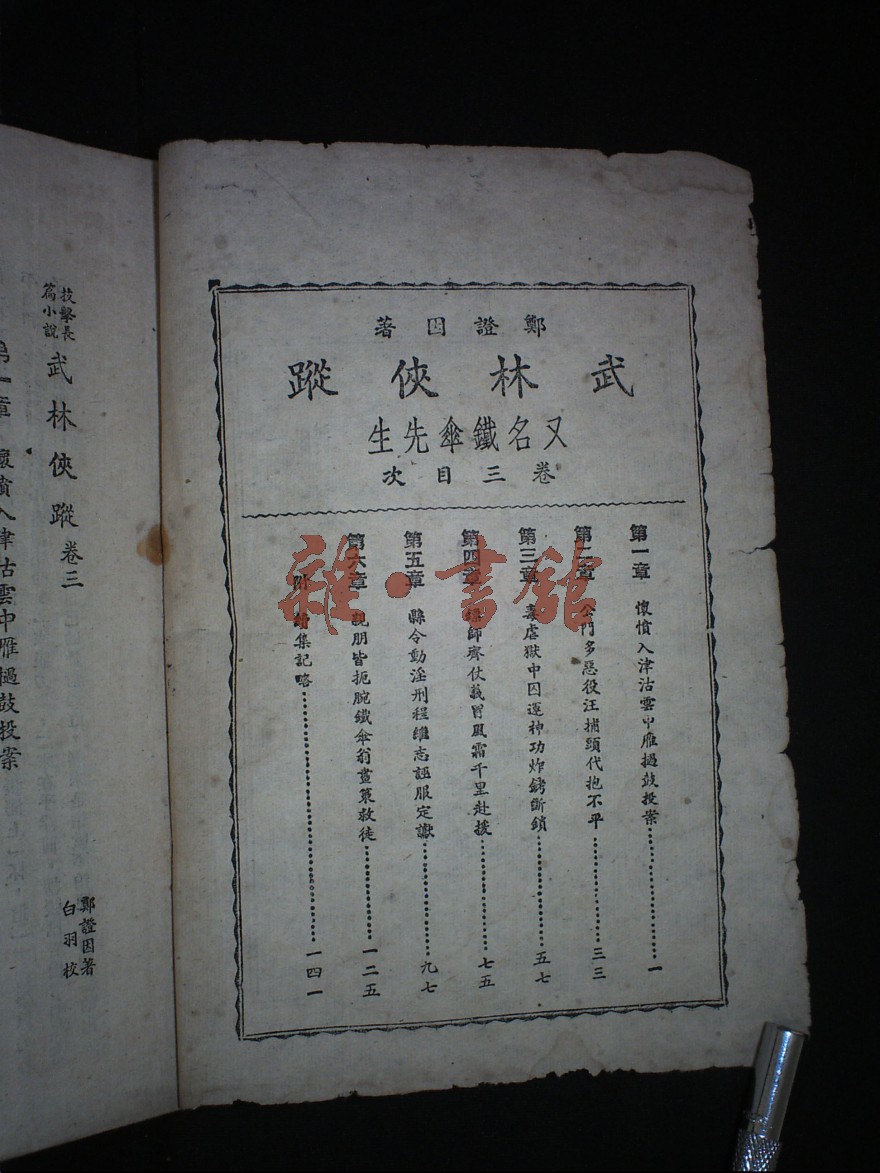 鄭證因著
武林俠蹤
又名鐵傘先生
卷三目次
第一章 懷憤入津沽雲中雁撾鼓投案……一
第二章 公門多惡役汪捕頭代抱不平……三三
第三章 毒虐獄中囚逞神功炸銬斷鎖……五七
第四章 師齊仗義冒風霜千里赴援……七五
第五章 縣令動淫刑程維志誣服定讞……九七
第六章 親朋皆扼腕鐵傘翁畫策救徒……一二五
附 續集記略……一四一
雜·書館
技擊長篇小說 武林俠蹤 卷三
鄭證因著
白羽校
第一章 懷憤入津沽雲中雁撾鼓投案